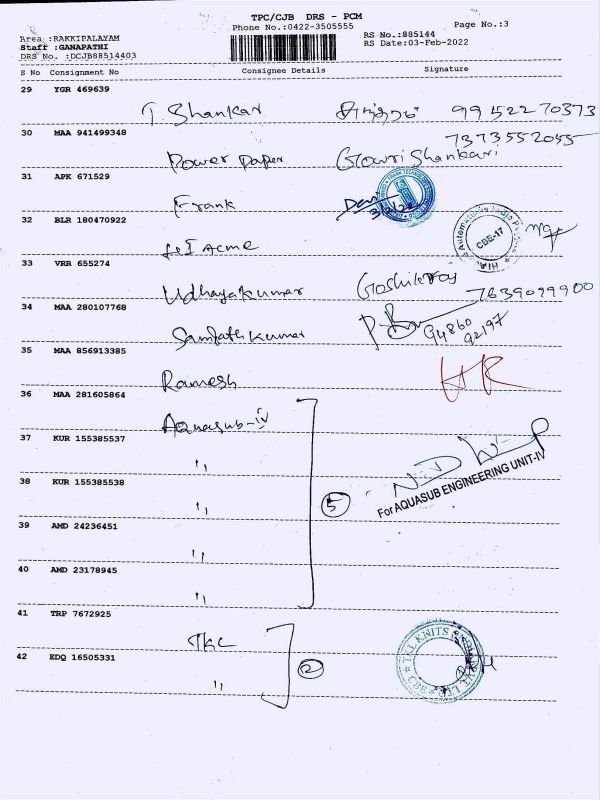 TPC/CJB DRS - PCM
Page No.:3
Phone No.:0422-3505555
Area :RAKKIPALAYAM
Staff :GANAPATHI
DRS No. :DCJB88514403
RS No.:885144
RS Date:03-Feb-2022
S No Consignment No Consignee Details Signature
29 YGR 469639
T. Shankar 9952270373
30 MAA 941499348
7373552055
Power paper Gowri Shankari
31 APK 671529
Frank 3/2/22
32 BLR 180470922
CBE-17
Acme
33 VRR 655274
Udhayakumar 7639099900
34 MAA 280107768
Sampath Kumar 94860
92197
35 MAA 856913385
Ramesh
36 MAA 281605864
Aquasub-IV
37 KUR 155385537
"
38 KUR 155385538
" 5
For AQUASUB ENGINEERING UNIT-IV
39 AMD 24236451
"
40 AMD 23178945
"
41 TRP 7672925
TKC
42 EDQ 16505331
" 2